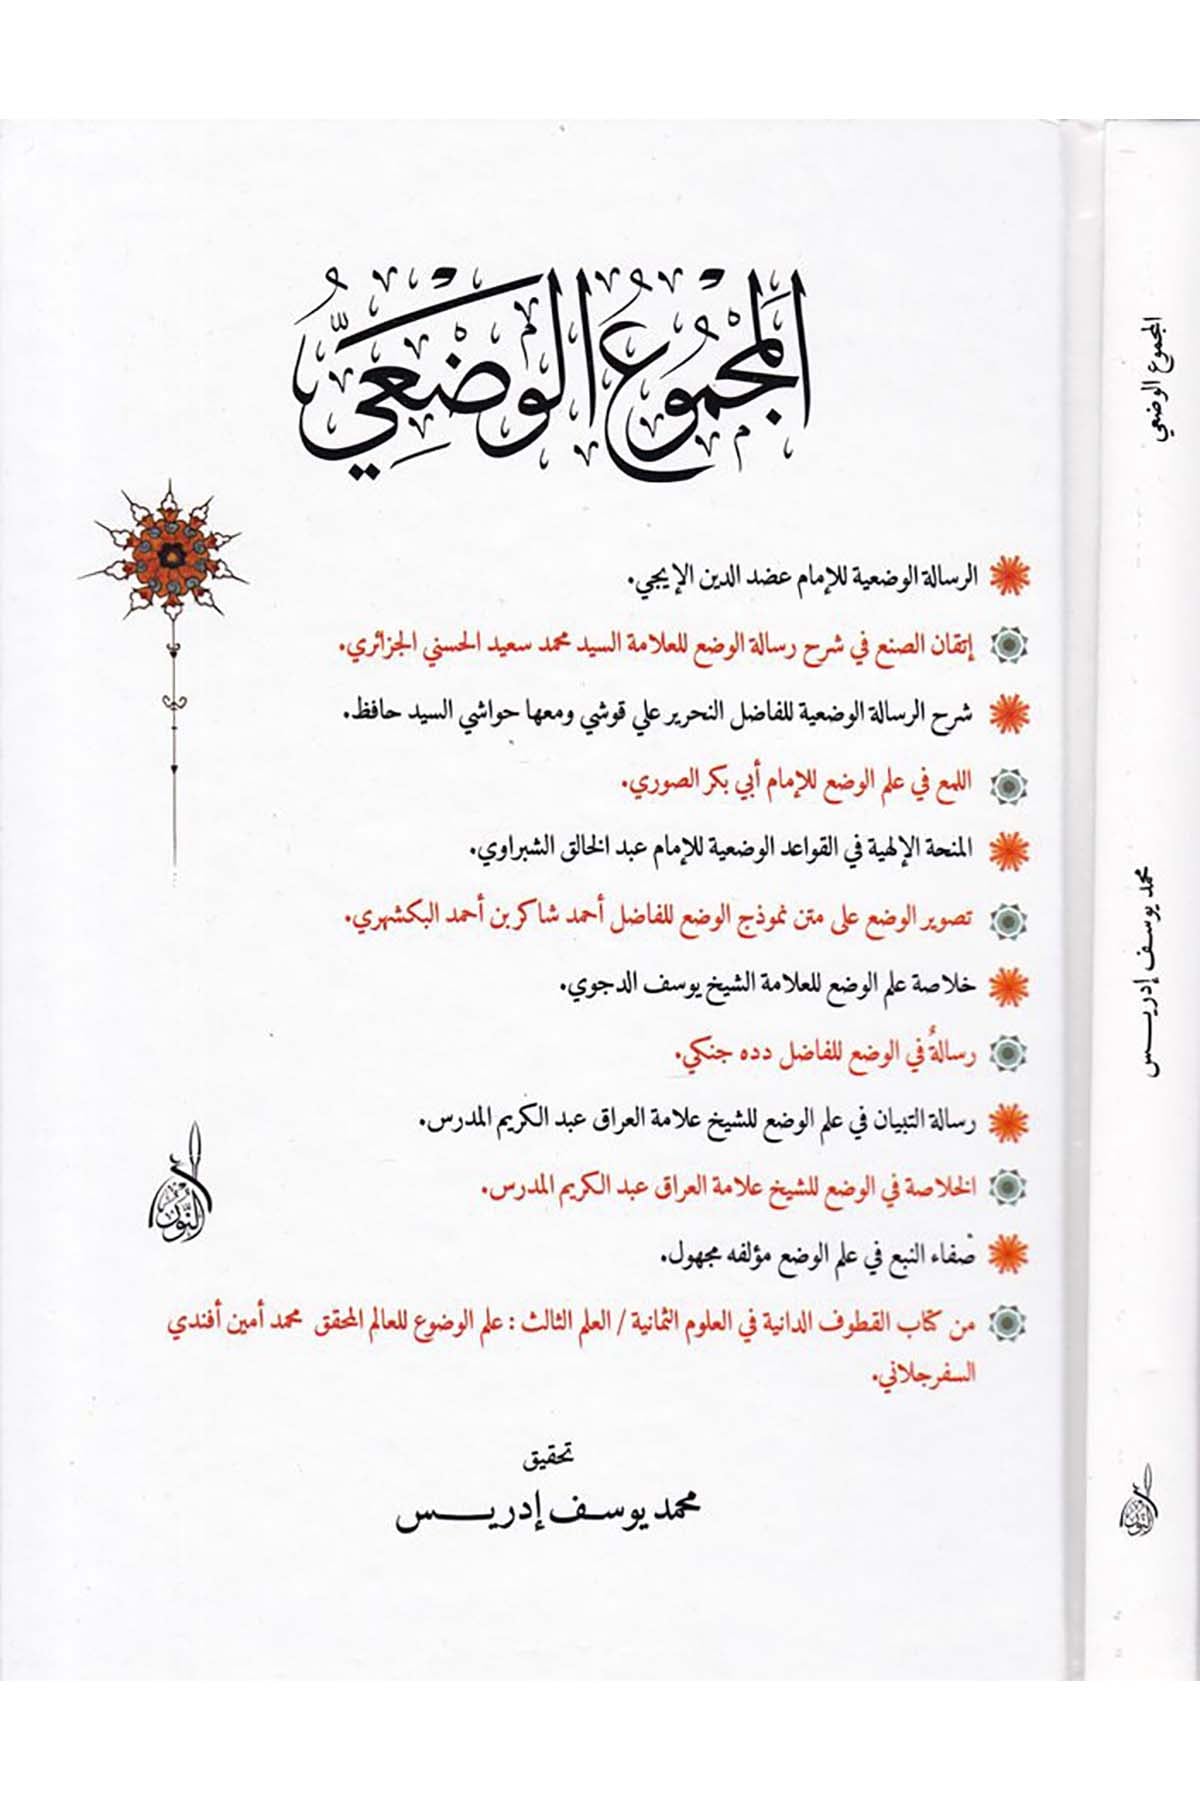 المجموع الوضعي
الرسالة الوضعية للإمام عضد الدين الإيجي.
إتقان الصنع في شرح رسالة الوضع للعلامة السيد محمد سعيد الحسني الجزائري.
شرح الرسالة الوضعية للفاضل النحرير علي قوشي ومعها حواشي السيد حافظ.
اللمع في علم الوضع للإمام أبي بكر الصوري.
المنحة الإلهية في القواعد الوضعية للإمام عبد الخالق الشبراوي.
تصوير الوضع على متن نموذج الوضع للفاضل أحمد شاكر بن أحمد البكشهري.
خلاصة علم الوضع للعلامة الشيخ يوسف الدجوي.
رسالةٌ في الوضع للفاضل دده جنكي.
رسالة التبيان في علم الوضع للشيخ علامة العراق عبد الكريم المدرس.
الخلاصة في الوضع للشيخ علامة العراق عبد الكريم المدرس.
صفاء النبع في علم الوضع مؤلفه مجهول.
من كتاب القطوف الدانية في العلوم الثمانية / العلم الثالث : علم الوضوع للعالم المحقق محمد أمين أفندي
السفرجلاني.
تحقيق
محمد يوسف إدريس
النور
المجموع الوضعي
محمد يوسف إدريس
النور